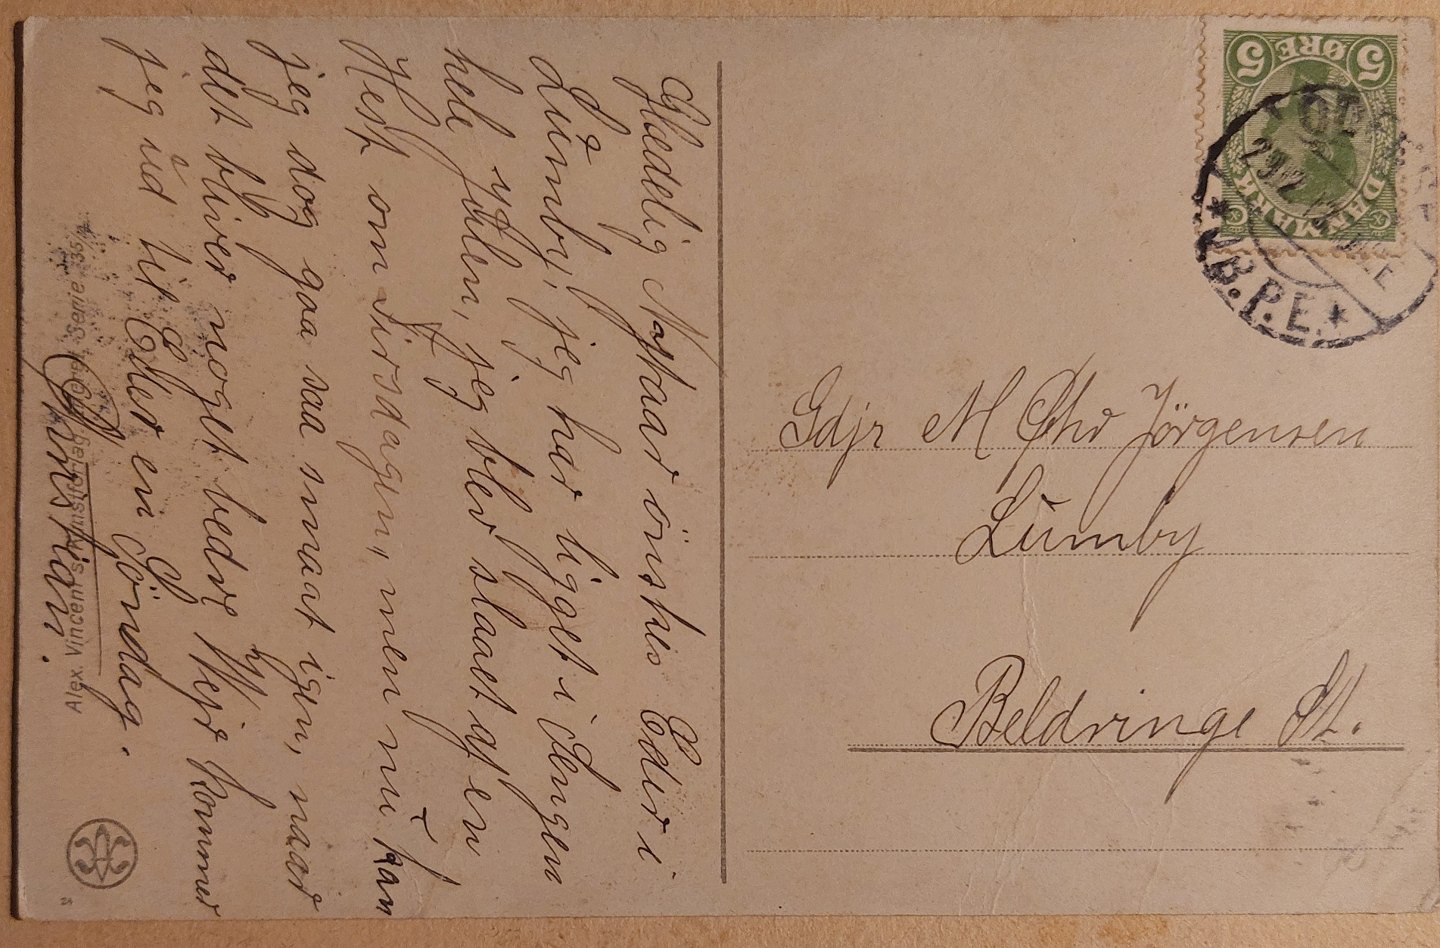 Glædelig Nytaar önskes Eder i
Lumby, jeg har ligget i Sengen
hele Julen, jeg blev slaaet af en
Hest om Tirsdagen, men nu kan
jeg dog gaa saa smaat igen, naar
det bliver noget bedre Vejr kommer
jeg ud til Eder en Söndag.
Christian.
Alex. Vincent's Kunstforlag Serie 35
24
5 ØRE 5
DANMARK
ODENSE
JB.P.E.
Gdjr M Chr Jörgensen
Lumby
Beldringe St.